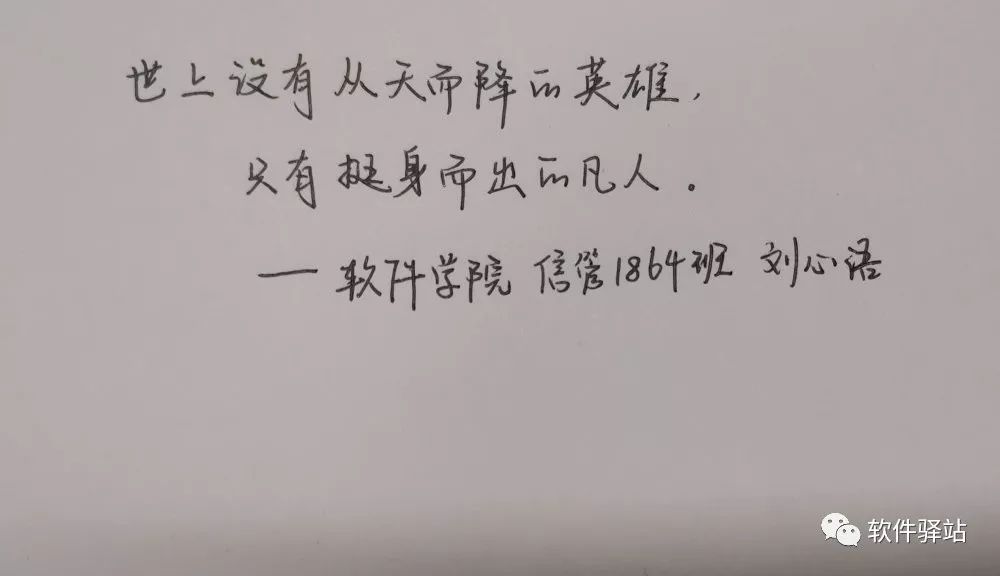 世上没有从天而降的英雄，
只有挺身而出的凡人。
——软件学院 信管1864班 刘心语
软件驿站